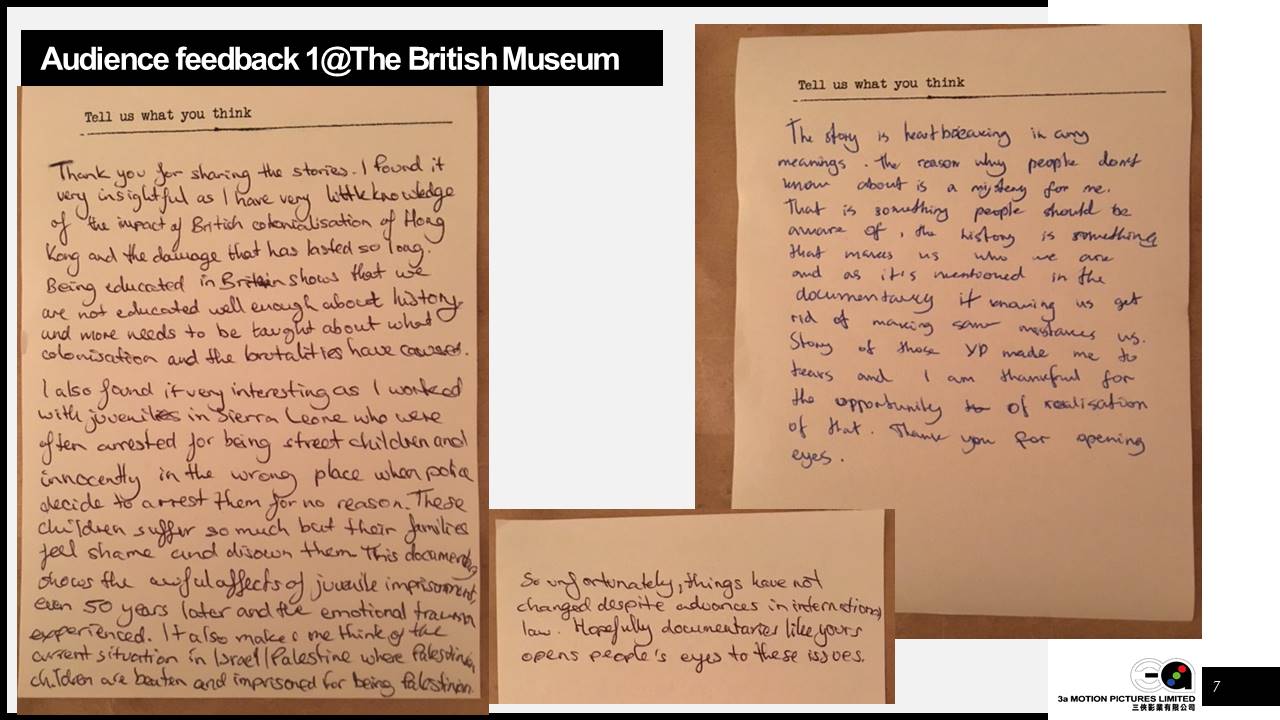 Audience feedback 1@The British Museum
Tell us what you think
Thank you for sharing the stories. I found it
very insightful as I have very little knowledge
of the impact of British colonialisation of Hong
Kong and the damage that has lasted so long.
Being educated in Britain shows that we
are not educated well enough about history
and more needs to be taught about what
colonisation and the brutalities have caused.
I also found it very interesting as I worked
with juveniles in Sierra Leone who were
often arrested for being street children and
innocently in the wrong place when police
decide to arrest them for no reason. These
children suffer so much but their families
feel shame and disown them. This documentary
shows the awful affects of juvenile imprisonment,
even 50 years later and the emotional trauma
experienced. It also makes me think of the
current situation in Israel/Palestine where Palestinian
children are beaten and imprisoned for being Palestinian.
So unfortunately, things have not
changed despite advances in international
law. Hopefully documentaries like yours
opens people's eyes to these issues.
Tell us what you think
The story is heartbreaking in any
meanings. The reason why people don't
know about is a mystery for me.
That is something people should be
aware of, the history is something
that makes us who we are
and as it's mentioned in the
documentary if knowing us get
rid of making same mistakes us.
Story of those YP made me to
tears and I am thankful for
the opportunity to of realisation
of that. Thank you for opening
eyes.
3a MOTION PICTURES LIMITED
三俠影業有限公司
7